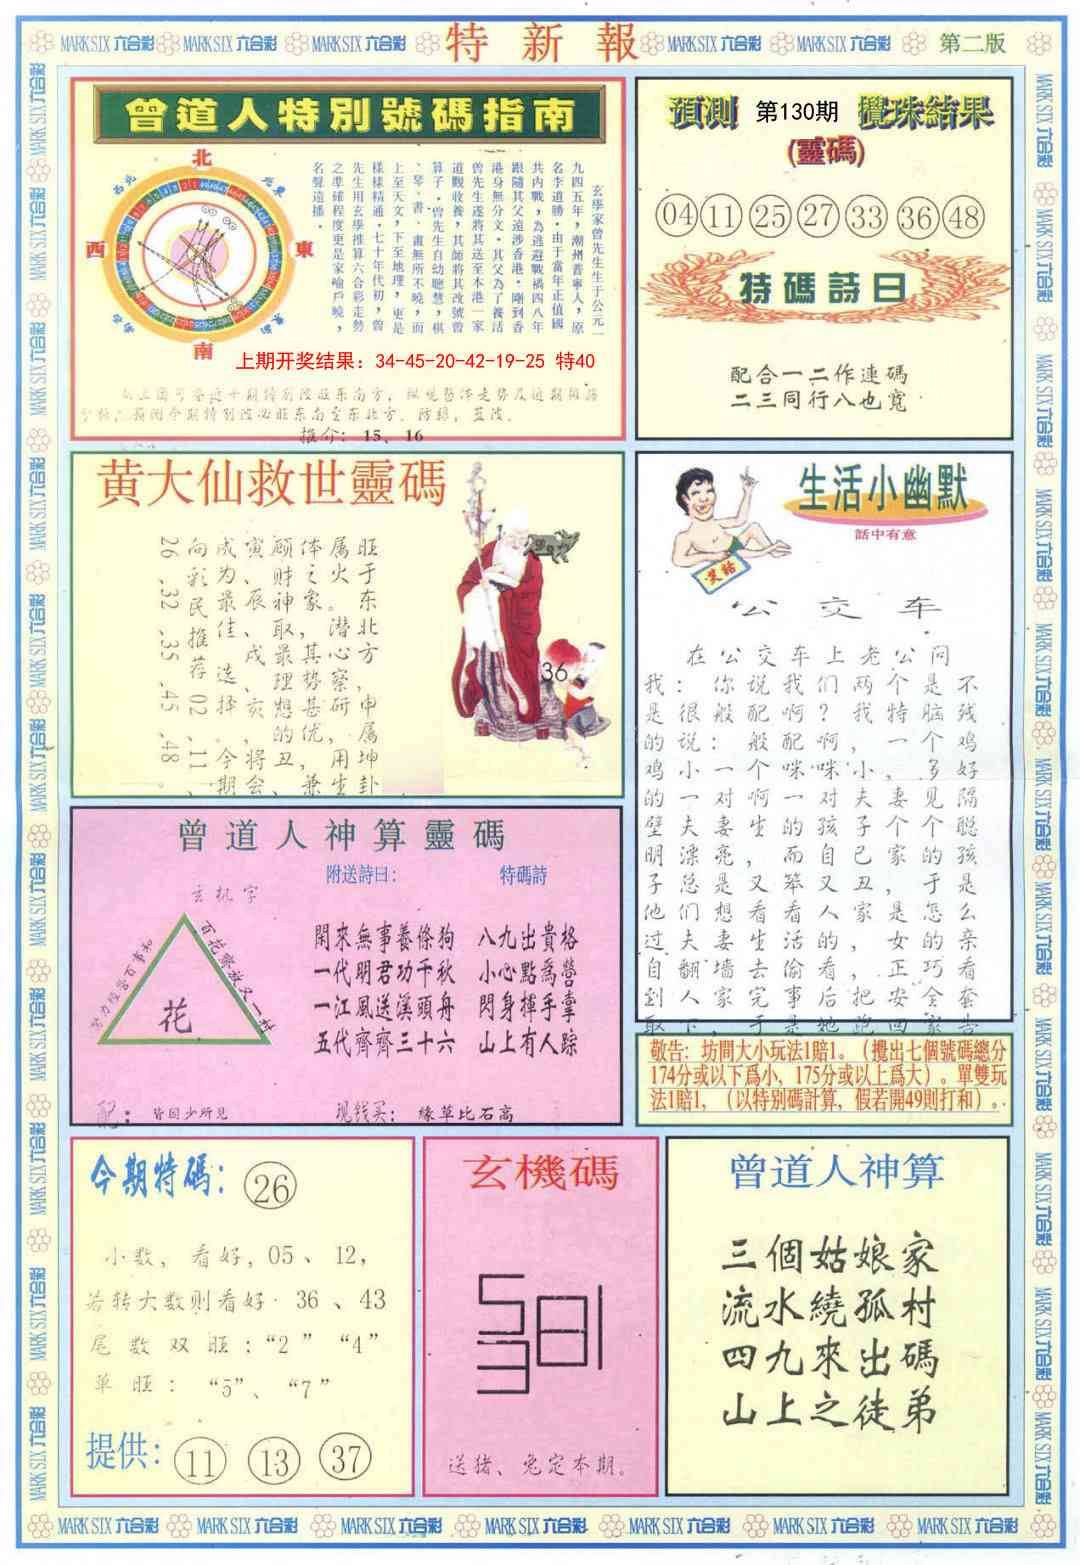 MARK SIX 六合彩 MARK SIX 六合彩 MARK SIX 六合彩 特新報 MARK SIX 六合彩 MARK SIX 六合彩 第二版
曾道人特別號碼指南
北
東北
東
東南
南
西南
西
西北
玄學家曾先生生于公元一
九四五年，潮州普寧人，原
名李道勝·由于當年正值國
共内戰，為逃避戰禍四八年
跟隨其父遠涉香港·剛到香
港身無分文·其父為了養活
曾先生遂將其送至本港一家
道觀收養，其師將其改號曾
算子·曾先生自幼聰慧，棋
、琴、書、畫無所不曉，而
上至天文，下至地理，更是
樣樣精通·七十年代初，曾
先生用玄學推算六合彩走勢
之準確程度更是家喻戶曉，
名聲遠播·
上期开奖结果：34-45-20-42-19-25 特40
推介：15、16
預測 第130期 攪珠結果
(靈碼)
04 11 25 27 33 36 48
特碼詩曰
配合一二作連碼
二三同行八也寬
黄大仙救世靈碼
旺于东北方，申属坤卦
属火。潜心察研，用生
体之家，其势甚优，兼
顾财神取最理想的丑、
寅、辰、戌、亥，将会
成为最佳选择。今期
向彩民推荐02.11.
26.32.35.45.48.
36
生活小幽默
話中有意
笑話
公交车
在公交车上老公问
我：你说我们两个是不
是很般配啊？我特脑残
的说：般配啊，一个鸡
鸡小一个咪咪小，多好
的一对啊一对夫妻见隔
壁夫妻生的孩子个个聪
明漂亮，而自己家的孩
子总是又笨又丑，于是
他们想看看人家是怎么
过夫妻生活的，女的亲
自翻墙去偷看，正巧看
到人家完事后把安全套
取下，于是她跑回家告
曾道人神算靈碼
玄机字
附送詩曰：
特碼詩
百花齊放又一村
花
閑來無事養條狗
一代明君功千秋
一江風送溪頭舟
五代齊齊三十六
八九出貴格
小心點爲營
閃身擇手掌
山上有人踪
配：皆因少所見
现钱买：緣草比石高
敬告：坊間大小玩法1賠1。（攪出七個號碼總分
174分或以下爲小，175分或以上爲大）。單雙玩
法1賠1，（以特別碼計算，假若開49則打和）。
今期特碼：26
小数，看好，05、12，
若转大数则看好·36、43
尾数双旺：“2”“4”
单旺：“5”、“7”
提供：11 13 37
玄機碼
送猪、兔定本期。
曾道人神算
三個姑娘家
流水繞孤村
四九來出碼
山上之徒弟
MARK SIX 六合彩 MARK SIX 六合彩 MARK SIX 六合彩 MARK SIX 六合彩 MARK SIX 六合彩 MARK SIX 六合彩 MARK SIX 六合彩